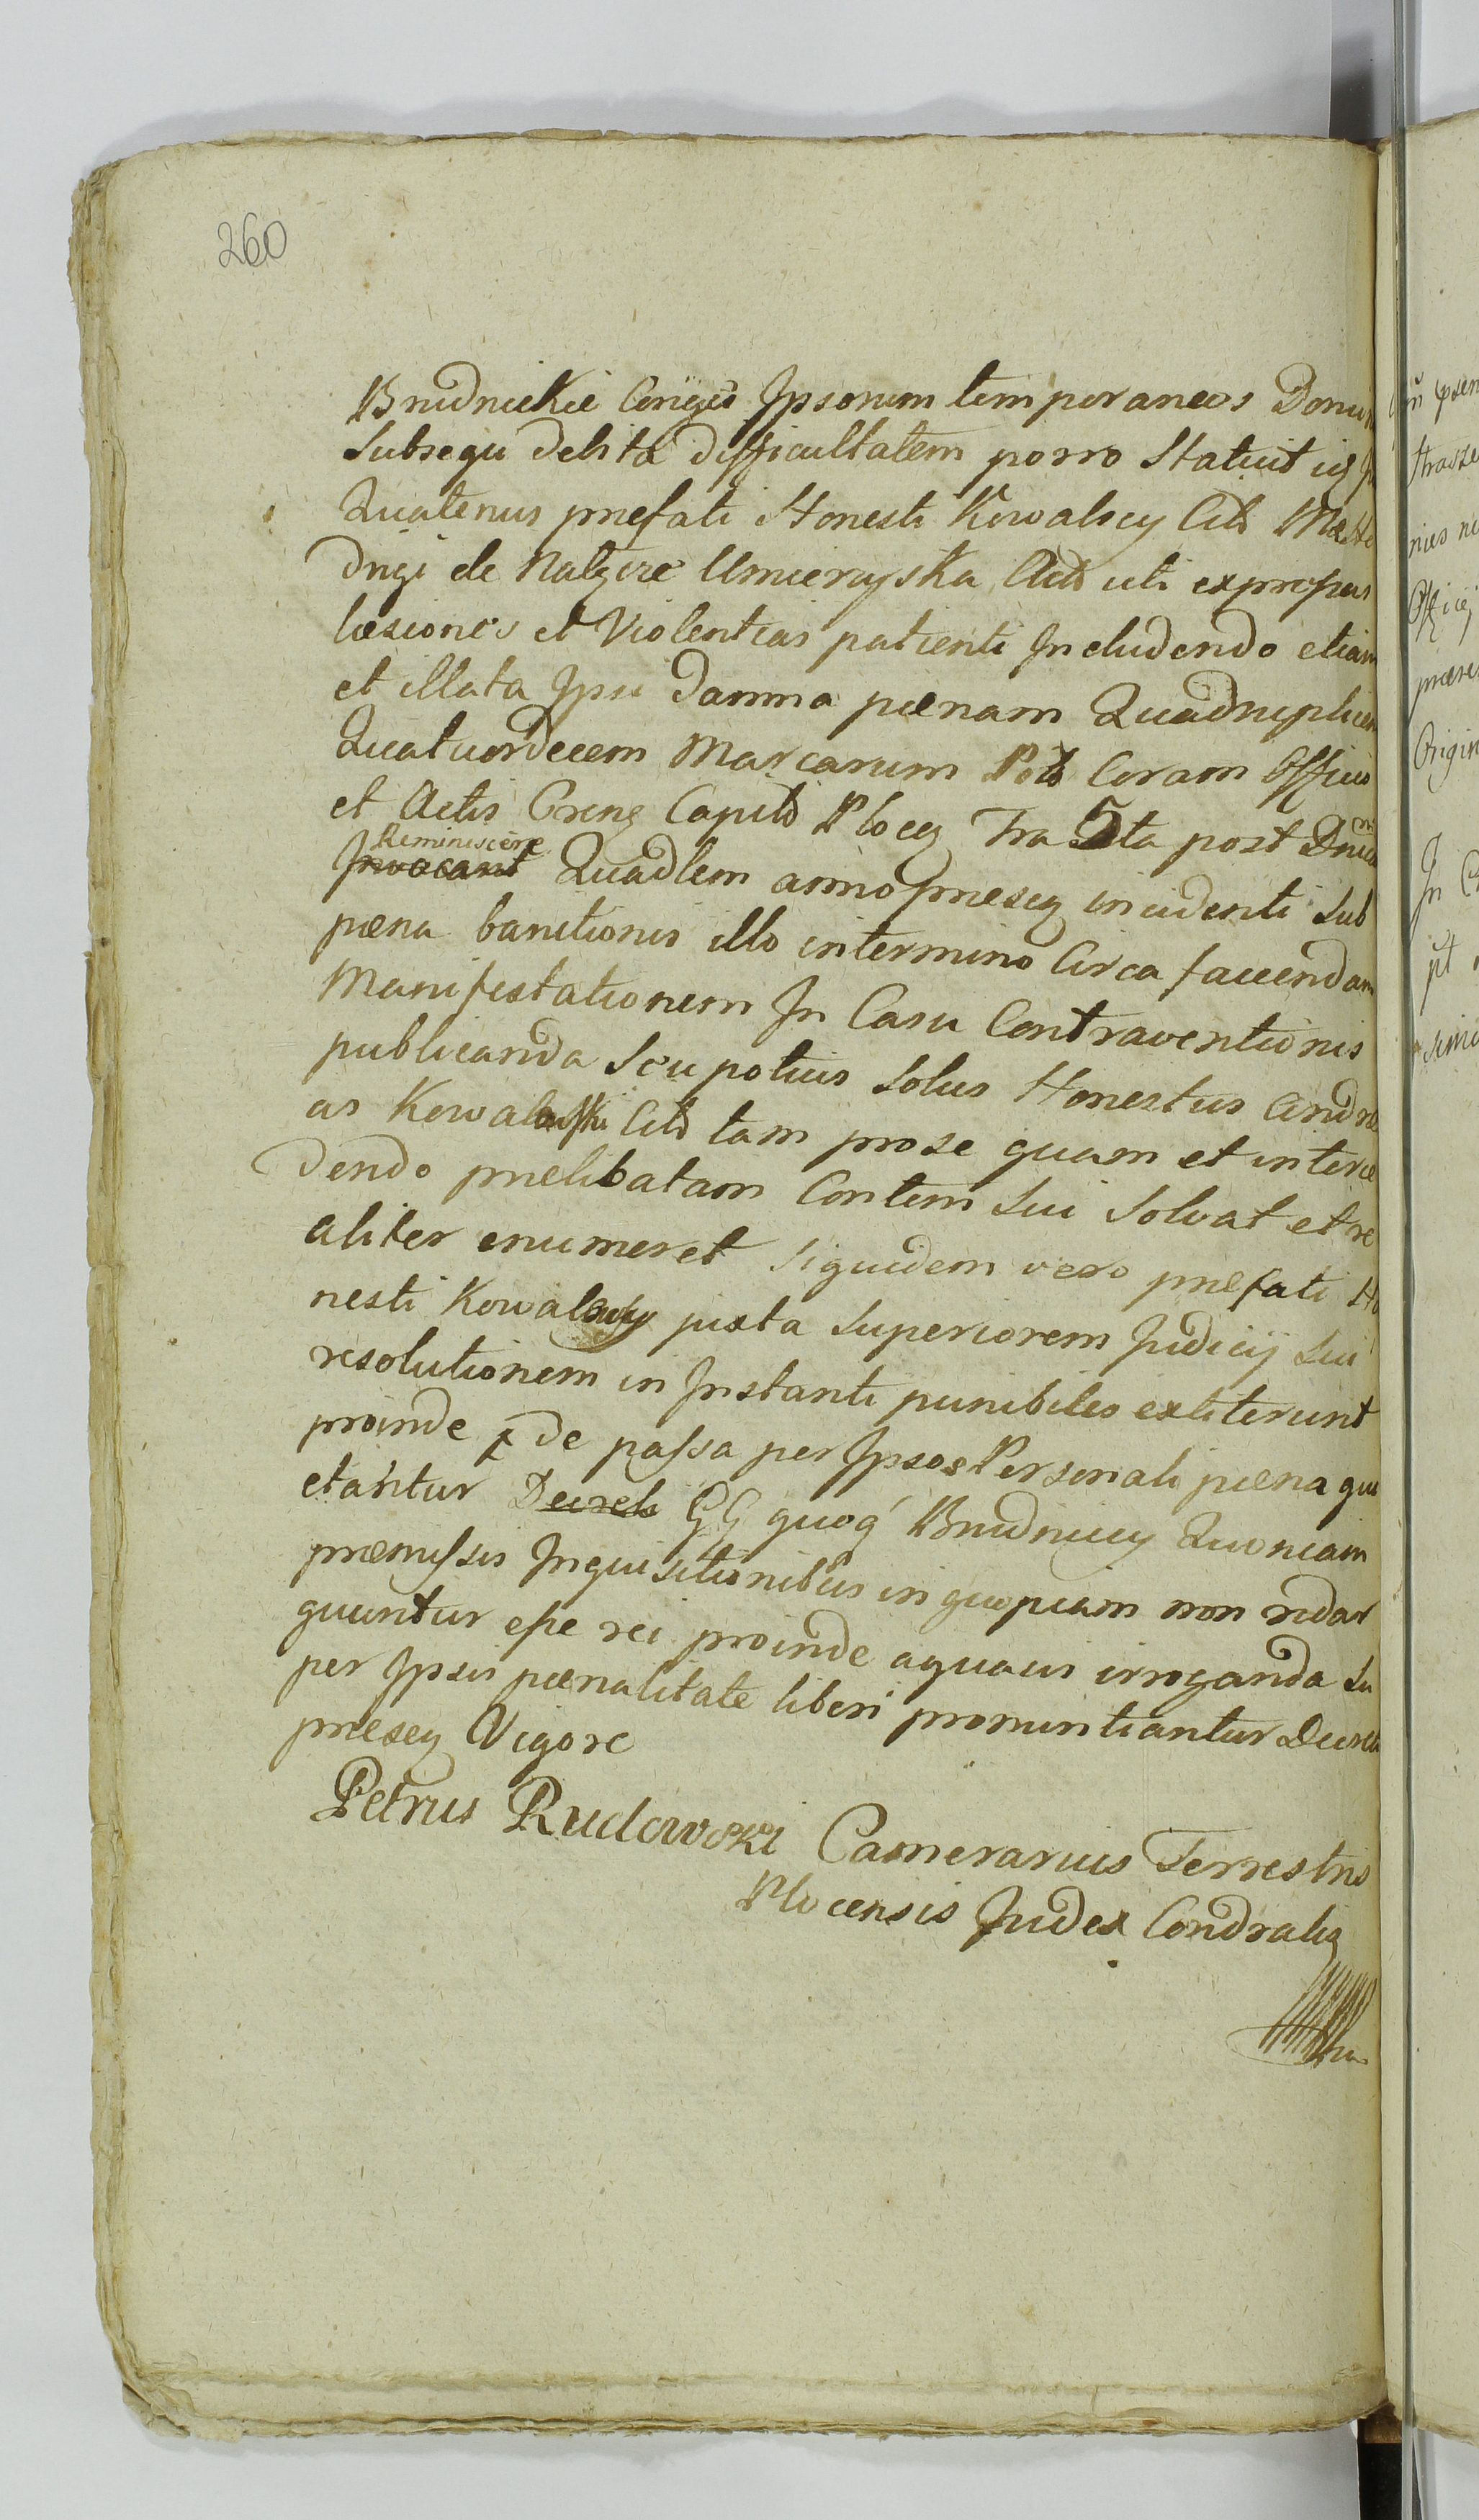 260
Brudnickie Conjges Ipsorum temporaneos
Subsequ debita difficultatem porro Statuit
Quatenus prefati Honesti Kowalscy Citi
de Nalgerze Umierzyska uti
læsiones et Violentias patienti Includendo etiam
et illata Ipsi damna pœnam Quadruplicem
Quatuordecem Marcarum Coram Officio
et Actis Capitt Plocen Fra 5ta post
Reminiscere
Invocavit Quadlem anno præsen incidenti sub
pœna banitionis illo intermino Circa faciendam
Manifestationem In Casu Contraventionis
publicanda Seu potius Solus Honestus Andre
as Kowalski Citt tam prose quam et interce
dendo prælibatam Contem Sui Solvat et re
aliter enumeret siquidem vero præfati Ho
nesti Kowalscy juxta Superiorem Judicij Sui
resolutionem in Instanti punibiles extiterunt
proinde de passa per Ipsos Personali pœna qui
etantur Decreti GG quoq Brudniccy Quoniam
præmissis Inquisitionibus in quopiam non redar
guuntur esse rei proinde aquavis irroganda Su
per Ipsis pœnalitate liberi pronuntiantur Decreti
præsen Vigore
Petrus Rudowski Camerarius Terrestris
Plocensis Judex Condralis